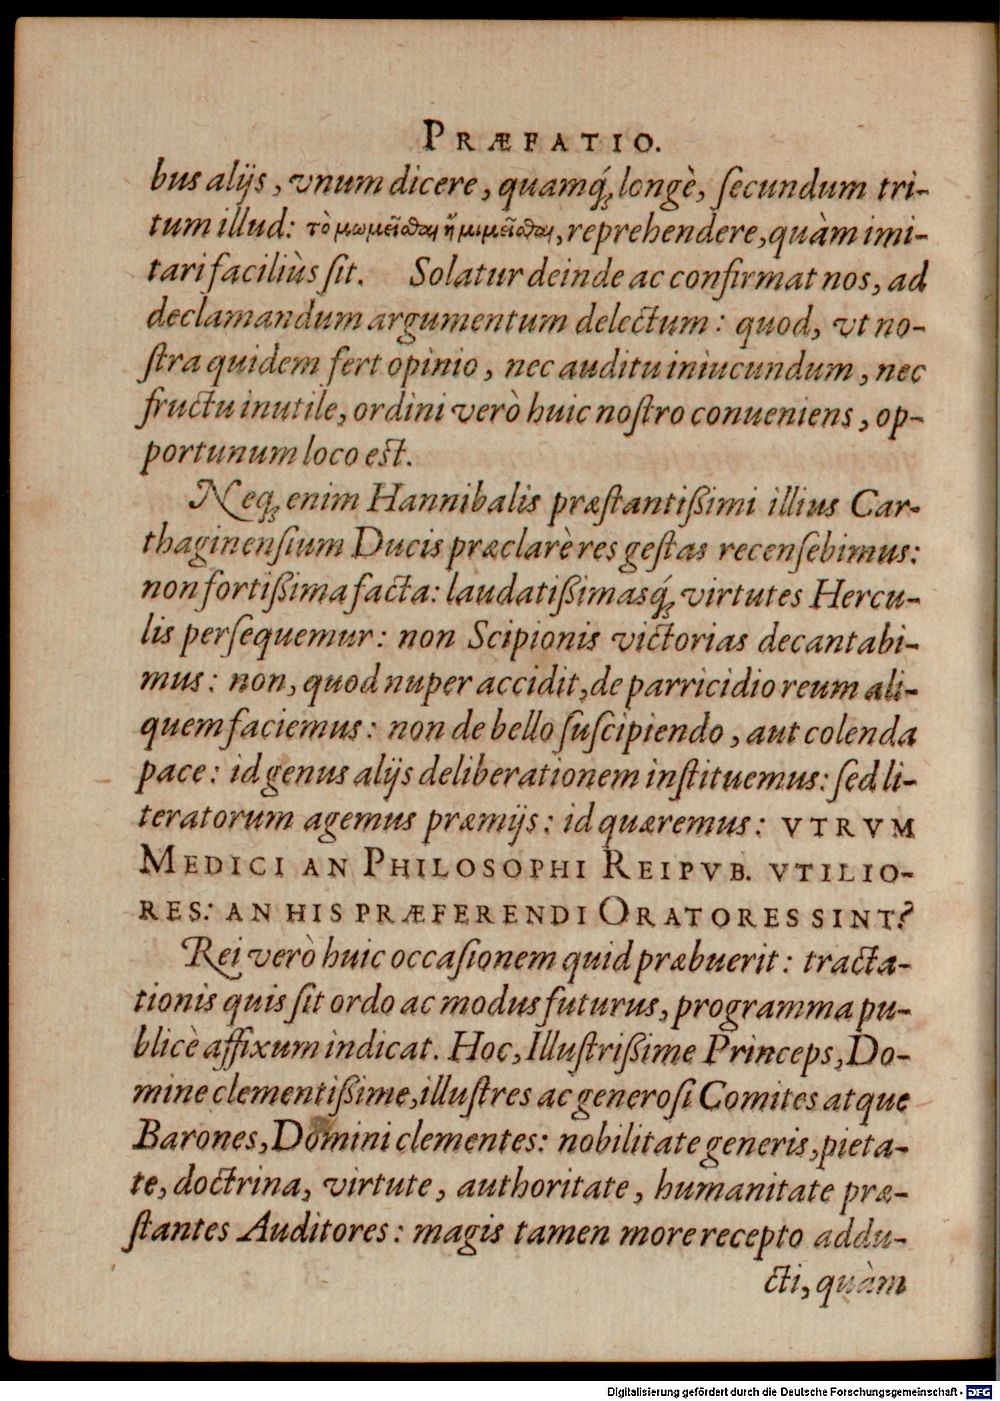 PRÆFATIO.
bus alijs, vnum dicere, quamq́; longè, ſecundum tri-
tum illud: τὸ μωμεῖσθαι ἢ μιμεῖσθαι, reprehendere, quàm imi-
tari faciliùs ſit. Solatur deinde ac confirmat nos, ad
declamandum argumentum delectum: quod, vt no-
ſtra quidem fert opinio, nec auditu iniucundum, nec
fructu inutile, ordini verò huic noſtro conueniens, op-
portunum loco est.
Neq; enim Hannibalis præſtantißimi illius Car-
thaginenſium Ducis præclarè res geſtas recenſebimus:
non fortißima facta: laudatißimasq́; virtutes Hercu-
lis perſequemur: non Scipionis victorias decantabi-
mus: non, quod nuper accidit, de parricidio reum ali-
quem faciemus: non de bello ſuſcipiendo, aut colenda
pace: id genus alijs deliberationem inſtituemus: ſed li-
teratorum agemus præmijs: id quæremus: VTRVM
MEDICI AN PHILOSOPHI REIPVB. VTILIO-
RES: AN HIS PRÆFERENDI ORATORES SINT?
Rei verò huic occaſionem quid præbuerit: tracta-
tionis quis ſit ordo ac modus futurus, programma pu-
blicè affixum indicat. Hoc, Illuſtrißime Princeps, Do-
mine clementißime, illuſtres ac generoſi Comites atque
Barones, Domini clementes: nobilitate generis, pieta-
te, doctrina, virtute, authoritate, humanitate præ-
ſtantes Auditores: magis tamen more recepto addu-
cti, quàm
Digitalisierung gefördert durch die Deutsche Forschungsgemeinschaft - DFG